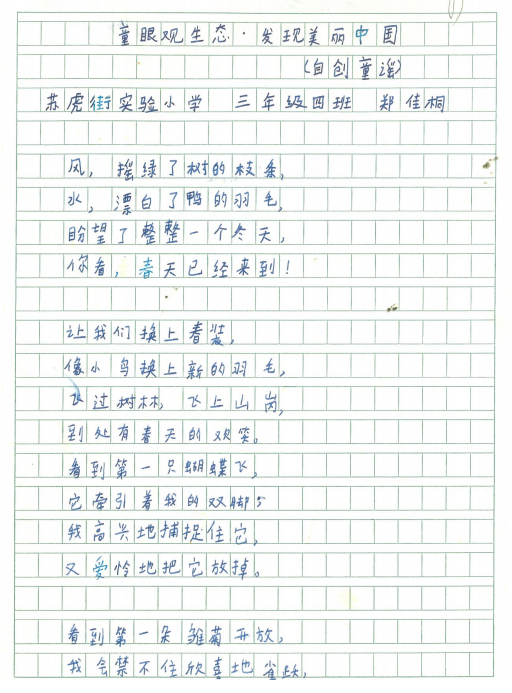 (1)
童眼观生态·发现美丽中国
(自创童谣)
苏虎街实验小学 三年级四班 郑佳桐
风，摇绿了树的枝条，
水，漂白了鸭的羽毛，
盼望了整整一个冬天，
你看，春天已经来到！
让我们换上春装，
像小鸟换上新的羽毛，
飞过树林，飞上山岗，
到处有春天的欢笑。
看到第一只蝴蝶飞，
它牵引着我的双脚；
我高兴地捕捉住它，
又爱怜地把它放掉。
看到第一朵雏菊开放，
我会禁不住欣喜地雀跃，